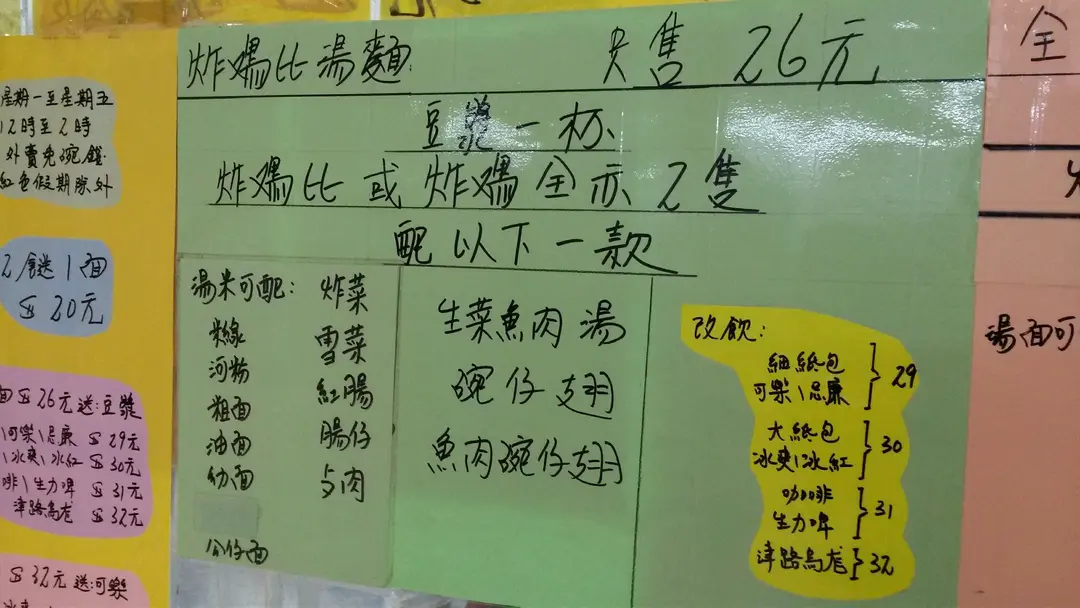 星期一至星期五
12時至2時
外賣免碗錢
紅色假期除外
2餸1面
$20元
面$26元送:豆漿
可樂\忌廉 $29元
\冰爽\冰紅 $30元
啡\生力啤 $31元
津路烏龙 $32元
$32元送:可樂
炸媽比湯麵 只售 26元
豆漿一杯
炸媽比或炸媽全亦2隻
配以下一款
湯米可配:
粉線
河粉
粗面
油面
幼面
公仔面
炸菜
雪菜
紅腸
腸仔
与肉
生菜魚肉湯
碗仔翅
魚肉碗仔翅
改飲:
細紙包
可樂\忌廉 } 29
大紙包
冰爽\冰紅 } 30
咖啡
生力啤 } 31
津路烏龙 } 32
全
湯面可